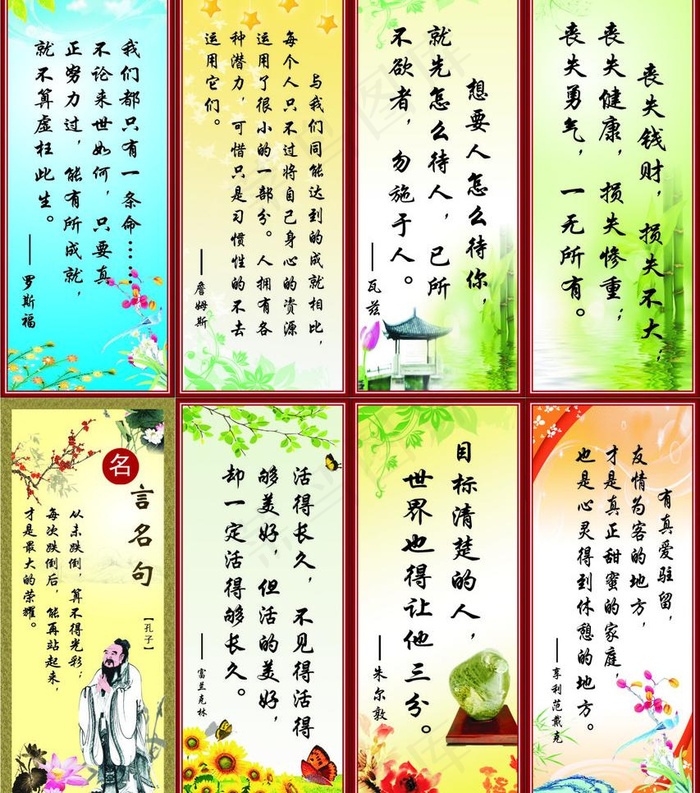 我们都只有一条命……
不论来世如何，只要真
正努力过，能有所成就，
就不算虚枉此生。
——罗斯福
与我们同能达到的成就相比，
每个人只不过将自己身心的资源
运用了很小的一部分。人拥有各
种潜力，可惜只是习惯性的不去
运用它们。
——詹姆斯
想要人怎么待你，
就先怎么待人，己所
不欲者，勿施于人。
——瓦兹
丧失钱财，损失不大；
丧失健康，损失惨重；
丧失勇气，一无所有。
名
言名句
【孔子】
从未跌倒，算不得光彩；
每次跌倒后，能再站起来，
才是最大的荣耀。
活得长久，不见得活得
够美好，但活的美好，
却一定活得够长久。
——富兰克林
目标清楚的人，
世界也得让他三分。
——朱尔敦
有真爱驻留，
友情为客的地方，
才是真正甜蜜的家庭，
也是心灵得到休憩的地方。
——亨利范戴克